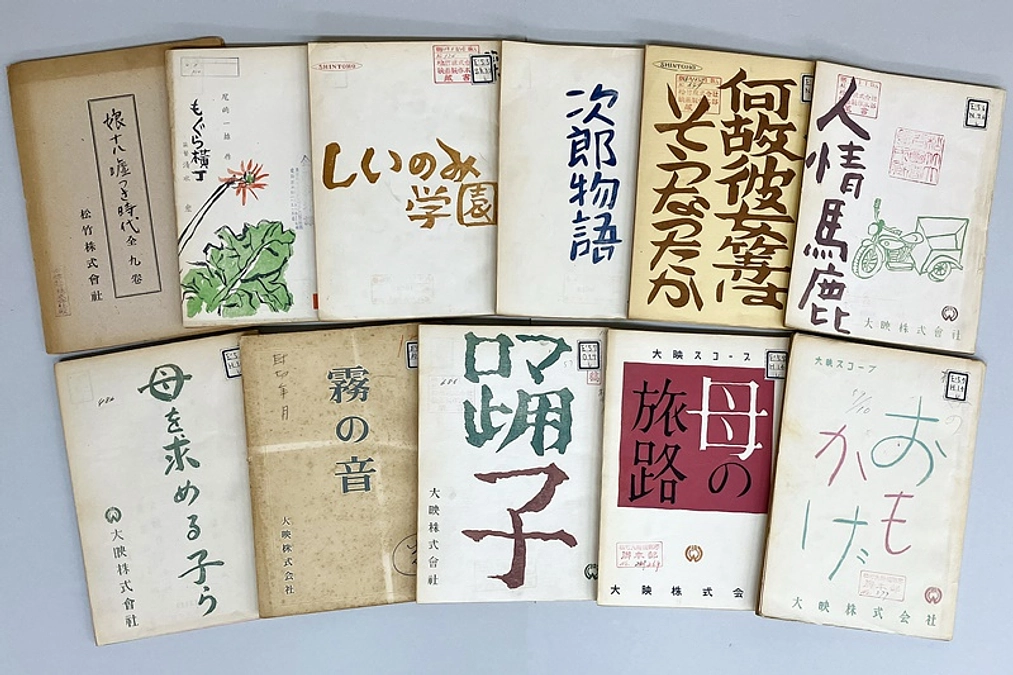 娘十八嘘つき時代 全九巻
松竹株式會社
尾崎一雄 作
もぐら横丁
監督 清水 宏
SHINTOHO
しいのみ
学園
次郎物語
SHINTOHO
何故彼女等は
そうなったか
人情馬鹿
大映株式會社
母を求める子ら
大映株式會社
霧の音
大映株式会社
踊子
大映株式會社
大映スコープ
母の
旅路
大映株式会
大映スコープ
おも
かげ
大映株式会社